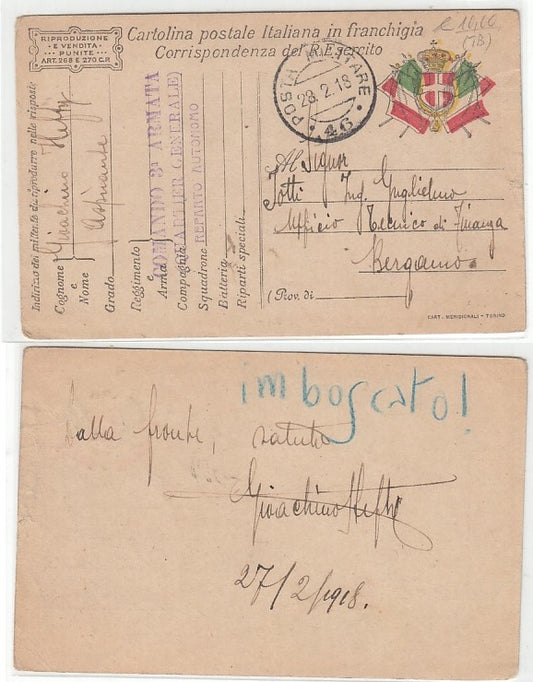 RIPRODUZIONE
E VENDITA
PUNITE
ART. 268 E 270 C.P.
Cartolina postale Italiana in franchigia
Corrispondenza del R. Esercito
(TB)
Indirizzo del militante da riprodurre nelle risposte
Cognome
e
Nome
Gioachino Hefty
Grado
Aspirante
Reggimento
e
Arma
Compagnia
Squadrone
Batteria
Riparti speciali
COMANDO 3ª ARMATA
QUARTIER GENERALE)
REPARTO AUTONOMO
POSTA MILITARE
28.2.18
• 46 •
Al Signor
Totti Ing. Guglielmo
Ufficio Tecnico di Finanza
Bergamo
(Prov. di
CART. MERIDIONALI - TORINO
imboscato!
Dalla fronte, saluta
Gioachino Hefty
27/2/1918.